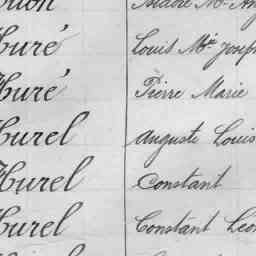 Huré Louis Mie Joseph
Huré Pierre Marie
Hurel Auguste Louis
Hurel Constant
Hurel Constant Léon